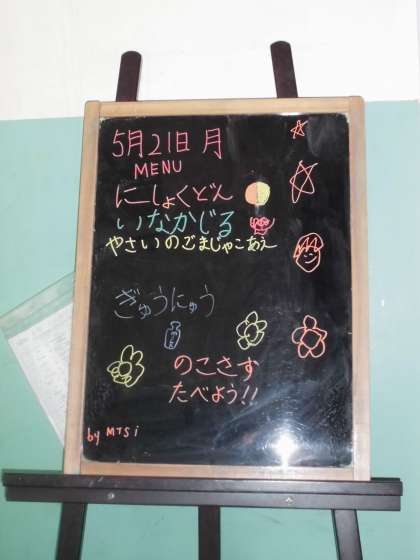 5月21日 月
MENU
にしょくどん
いなかじる
やさいのごまじゃこあえ
ぎゅうにゅう
のこさす
たべよう!!
by MTSi